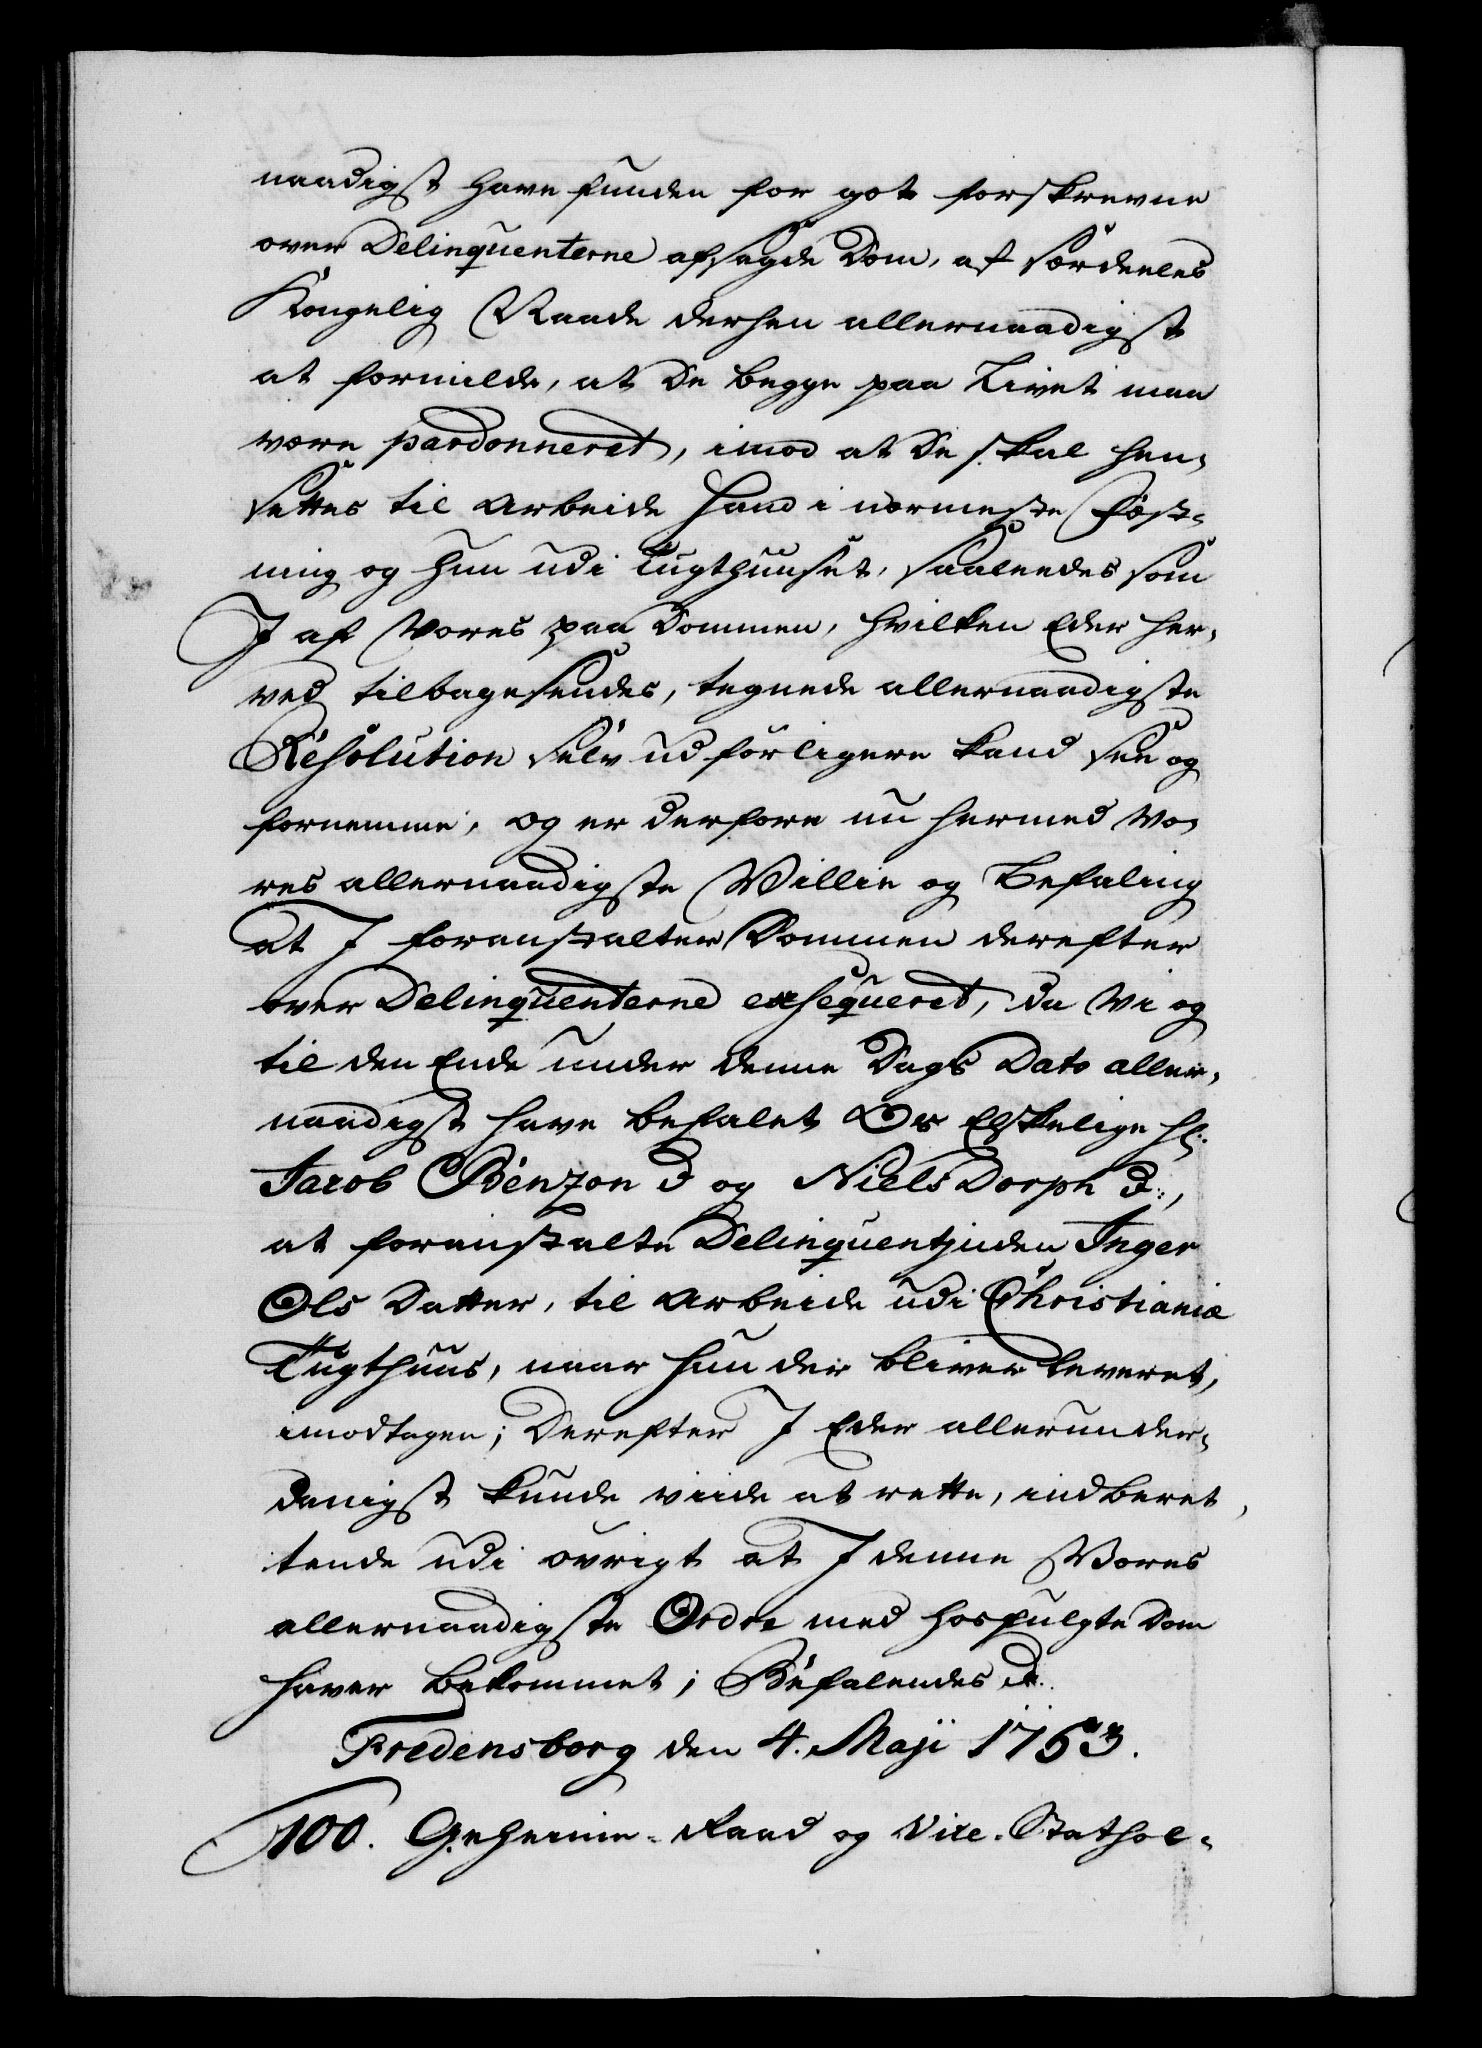 naadigst have funden for got forskrevne
over Delinquenterne afsagde Dom, af særdeeles
Kongelig Naade derhen allernaadigst
at formilde, at De begge paa Livet maa
være pardonneret, imod at De skal hen-
settes til Arbeide Hand i nærmeste Fæst-
ning og Hun udi Tugthuuset, saaleedes som
I af Vores paa Dommen, hvilken Eder her-
ved tilbagesendes, tegnede allernaadigste
Resolution selv udførligere kand see og
fornemme, og er derfore nu hermed Vo-
res allernaadigste Villie og Befaling
at I foranstalter Dommen derefter
over Delinquenterne exsequeret, da Vi og
til den Ende under denne Dags Dato aller-
naadigst have befalet Os Elskelige Hl:
Jacob Benzon D og Niels Dorph D:,
at foranstalte Delinquentinden Inger
Ols Datter, til Arbeide udi Christianiæ
Tugthuus, naar hun der bliver leveret,
imodtagen; Derefter I Eder allerunder-
danigst kunde viide at rette, indberet-
tende udi øvrigt at I denne Vores
allernaadigste Ordre med hosfulgte Dom
haver bekommet; Befalendes etc.
Fredensborg den 4. Maji 1753.
100. Geheime-Raad og Vice-Stathol-